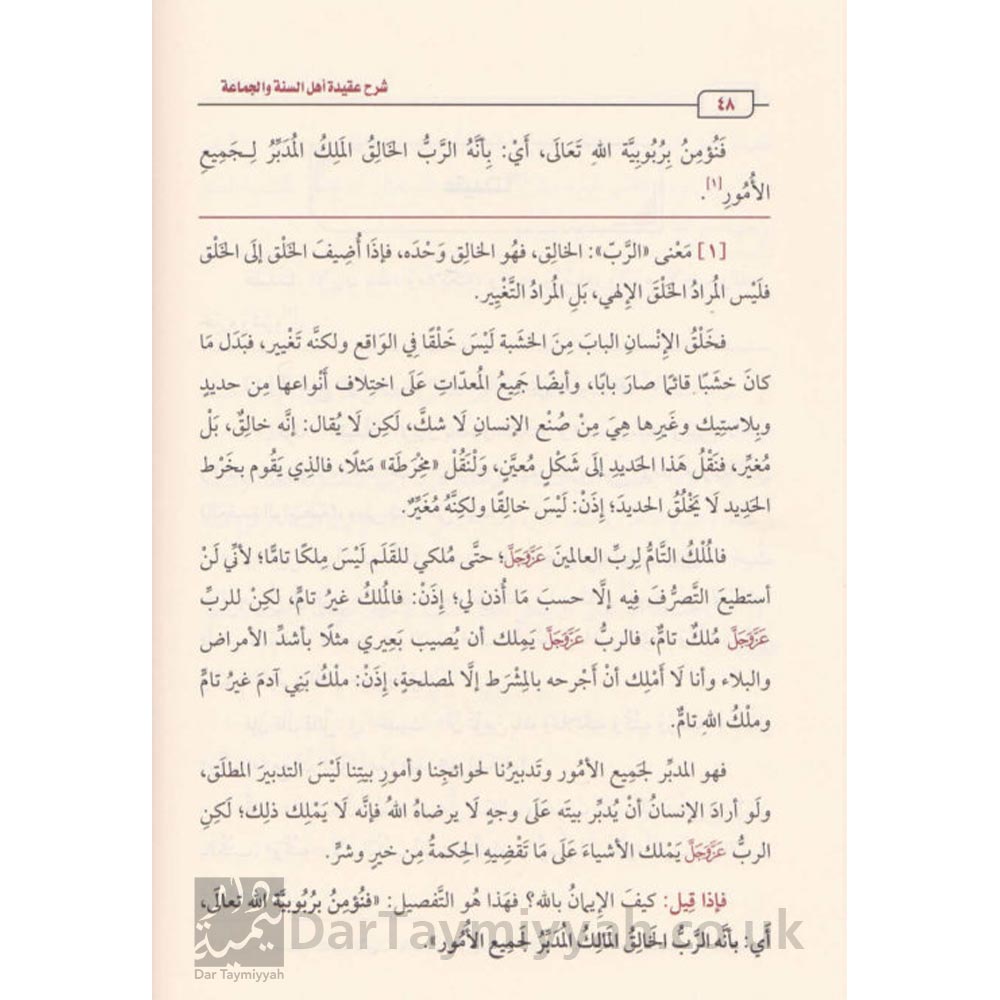 شرح عقيدة أهل السنة والجماعة
٤٨
فَنُؤمِنُ بِرُبُوبِيَّة اللهِ تَعَالَى، أَيْ: بِأَنَّهُ الرَّبُّ الخَالِقُ المَلِكُ المُدَبِّرُ لِـجَمِيعِ
الأُمُورِ[١].
[١] مَعْنى «الرَّبّ»: الخالِق، فهُو الخالِق وَحْدَه، فإذَا أُضِيفَ الخَلْق إلَى الخَلْق
فلَيْس المُرادُ الخَلْقَ الإلهي، بَلِ المُرادُ التَّغْيِير.
فخَلْقُ الإِنْسانِ البابَ مِنَ الخَشَبة لَيْسَ خَلْقًا فِي الوَاقع ولكنَّه تَغْيير، فبَدَل مَا
كانَ خشَبًا قائمًا صارَ بابًا، وأيضًا جَمِيعُ المُعدّاتِ عَلَى اختِلاف أَنْواعها مِن حديدٍ
وبِلاستِيك وغَيرِها هِيَ مِنْ صُنْع الإنسانِ لَا شكَّ، لَكِن لَا يُقال: إنَّه خالِقٌ، بَلْ
مُغيِّر، فنَقْلُ هَذا الحَديدِ إلَى شَكْلٍ مُعيَّنٍ، وَلْنَقُلْ «مِخْرَطَة» مَثلًا، فالذِي يَقُوم بخَرْط
الحَدِيد لَا يَخْلُقُ الحديدَ؛ إِذَنْ: لَيْسَ خالِقًا ولكنَّهُ مُغَيِّرٌ.
فالمُلْكُ التَّامُّ لِربِّ العالمينَ عَزَّوَجَلَّ؛ حتَّى مُلكي للقَلَم لَيْسَ مِلكًا تامًّا؛ لأنِّي لَنْ
أستطيعَ التَّصرُّفَ فِيه إلَّا حسبَ مَا أُذن لي؛ إِذَنْ: فالمُلكُ غيرُ تامٍّ، لكِنْ للربِّ
عَزَّوَجَلَّ مُلكٌ تامٌّ، فالربُّ عَزَّوَجَلَّ يَملِك أن يُصيب بَعِيري مثلًا بأشدِّ الأمراض
والبلاء وأنا لَا أَمْلِك أنْ أَجْرحه بالمِشْرَط إلَّا لمصلحةٍ، إِذَنْ: ملْكُ بَنِي آدمَ غيرُ تامٍّ
وملْكُ اللهِ تامٌّ.
فهو المدبِّر لجَمِيع الأمُور وتَدبيرُنا لحوائجِنا وأمورِ بيتِنا لَيْسَ التدبيرَ المطلَق،
ولَو أرادَ الإنسانُ أنْ يُدبِّر بيتَه عَلَى وجهٍ لَا يرضاهُ اللهُ فإنَّه لَا يَمْلِك ذلِك؛ لَكِنِ
الربُّ عَزَّوَجَلَّ يَمْلك الأشياءَ عَلَى مَا تَقْضِيهِ الحِكمةُ مِن خيرٍ وشرٍّ.
فإذا قِيل: كيفَ الإيمانُ بالله؟ فهَذا هُو التَّفصيل: «فنُؤمِنُ برُبُوبيَّة الله تعالَى،
أَي: بأنَّه الرَّبُّ الخالِقُ المَالِكُ المُدبِّرُ لجَمِيعِ الأُمُور».
DarTaymiyyah.co.uk
Dar Taymiyyah